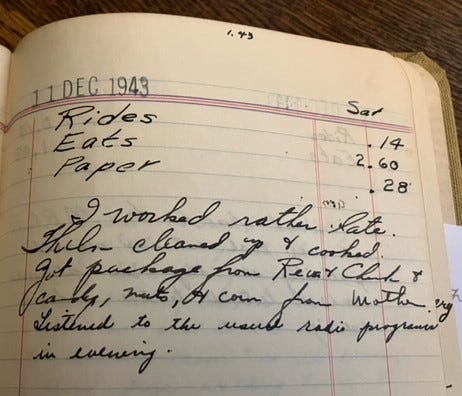 1.43
11 DEC 1943 Sat
Rides .14
Eats 2.60
Paper .28
I worked rather late.
Thils cleaned up & cooked.
Got package from & Chuck &
candy, nuts, & corn from Mother.
Listened to the usual radio programs
in evening.